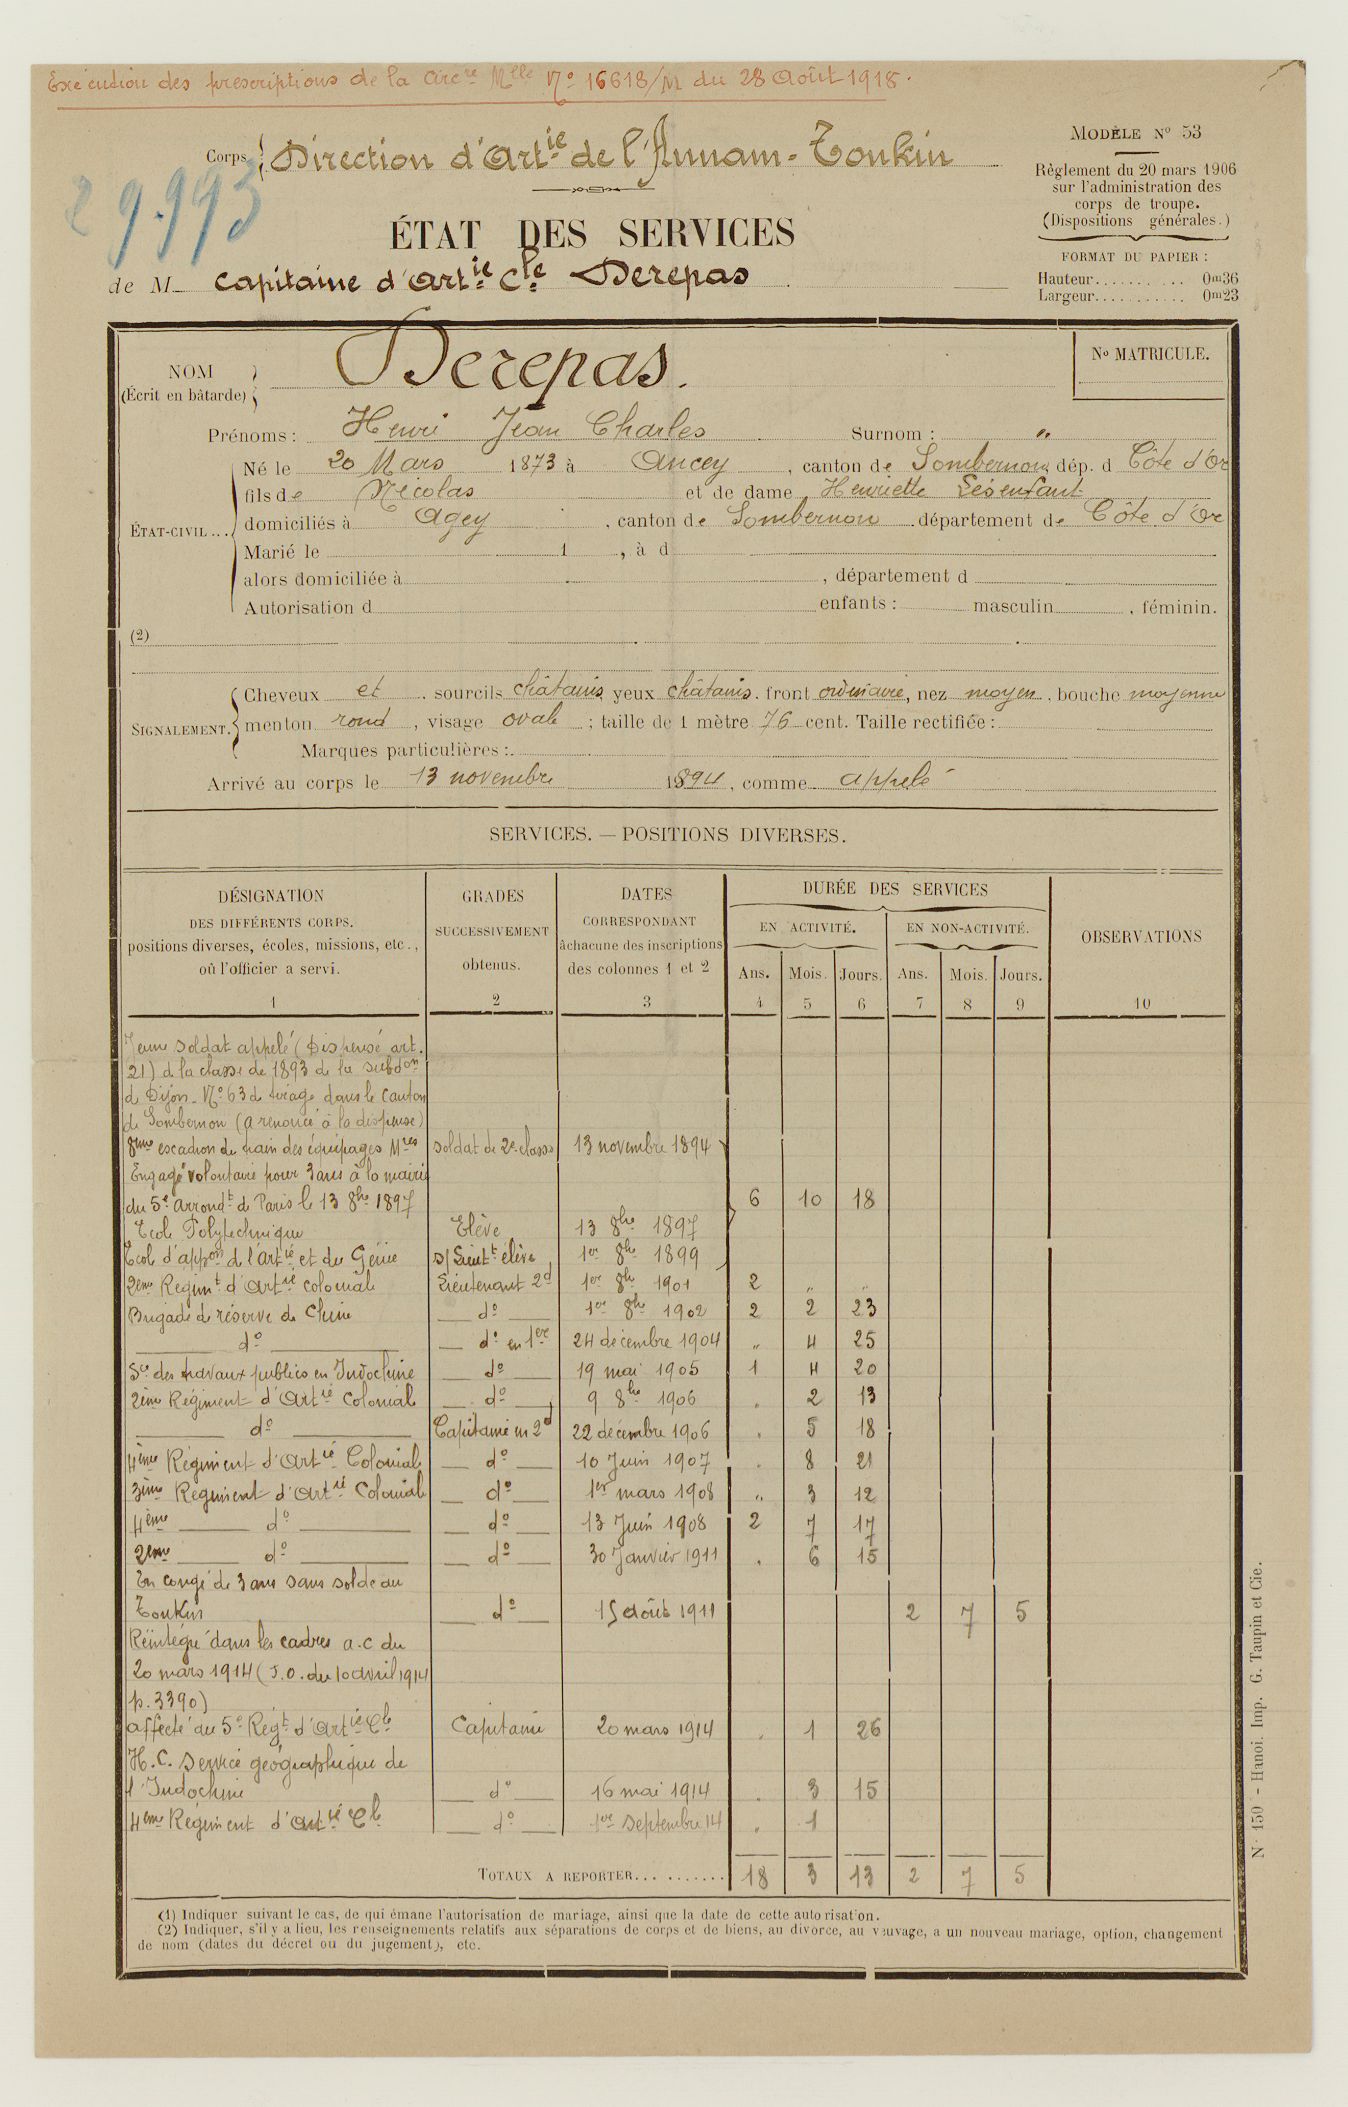 Exécution des prescriptions de la Circre Mlle No 16618/M du 28 Août 1918.
Corps Direction d'Artie de l'Annam-Tonkin
29.993
ÉTAT DES SERVICES
de M. Capitaine d'Artie Cle Derepas
MODÈLE No 53
Règlement du 20 mars 1906
sur l'administration des
corps de troupe.
(Dispositions générales.)
FORMAT DU PAPIER :
Hauteur.......... 0m36
Largeur.......... 0m23
NOM
(Écrit en bâtarde)
Derepas.
No MATRICULE.
Prénoms : Henri Jean Charles Surnom : "
ÉTAT-CIVIL...
Né le 20 Mars 1873 à Ancey, canton de Sombernon dép. d Côte d'Or
fils de Nicolas et de dame Henriette Lesenfant
domiciliés à Agey, canton de Sombernon département de Côte d'Or
Marié le 1 , à d
alors domiciliée à , département d
Autorisation d enfants : masculin , féminin.
(2)
SIGNALEMENT.
Cheveux et sourcils châtains yeux châtains. front ordinaire, nez moyen, bouche moyenne
menton rond, visage ovale ; taille de 1 mètre 76 cent. Taille rectifiée :
Marques particulières :
Arrivé au corps le 13 novembre 1894, comme appelé
SERVICES. — POSITIONS DIVERSES.
DÉSIGNATION
DES DIFFÉRENTS CORPS.
positions diverses, écoles, missions, etc.,
où l'officier a servi.
1
GRADES
SUCCESSIVEMENT
obtenus.
2
DATES
CORRESPONDANT
à chacune des inscriptions
des colonnes 1 et 2
3
DURÉE DES SERVICES
EN ACTIVITÉ. EN NON-ACTIVITÉ.
Ans. Mois. Jours. Ans. Mois. Jours.
4 5 6 7 8 9
OBSERVATIONS
10
Jeune soldat appelé (Dispensé art.
21) d la classe de 1893 de la subdon
de Dijon. No 63 de tirage dans le canton
de Sombernon (a renoncé à la dispense)
8ème escadron du train des équipages Mres soldat de 2e classe 13 novembre 1894
Engagé volontaire pour 3 ans à la mairie
du 5e arrondt de Paris le 13 8bre 1897 6 10 18
Ecole Polytechnique Elève 13 8bre 1897
Ecole d'appon de l'Artie et du Génie s/Lieutt élève 1er 8bre 1899
2ème Regimt d'Artie colonial Lieutenant 2d 1er 8bre 1901 2 " "
Brigade de réserve de Chine do 1er 8bre 1902 2 2 23
do do en 1er 24 décembre 1904 " 4 25
Sce des travaux publics en Indochine do 19 mai 1905 1 4 20
2ème Régiment d'Artie Colonial do 9 8bre 1906 " 2 13
do Capitaine en 2d 22 décembre 1906 " 5 18
4ème Régiment d'Artie Colonial do 10 Juin 1907 " 8 21
3ème Régiment d'Artie Colonial do 1er mars 1908 " 3 12
4ème do do 13 Juin 1908 2 7 17
2ème do do 30 Janvier 1911 " 6 15
En congé de 3 ans sans solde au
Tonkin do 15 août 1911 2 7 5
Réintégré dans les cadres a.c du
20 mars 1914 (J.O. du 10 avril 1914
p. 3390)
affecté au 5e Régt d'Artie Cle Capitaine 20 mars 1914 " 1 26
H.C. Service géographique de
l'Indochine do 16 mai 1914 " 3 15
4ème Régiment d'Artie Cle do 1er septembre 14 " 1
TOTAUX A REPORTER.......... 18 3 13 2 7 5
(1) Indiquer suivant le cas, de qui émane l'autorisation de mariage, ainsi que la date de cette autorisation.
(2) Indiquer, s'il y a lieu, les renseignements relatifs aux séparations de corps et de biens, au divorce, au veuvage, a un nouveau mariage, option, changement
de nom (dates du décret ou du jugement), etc.
N· 150 - Hanoi. Imp. G. Taupin et Cie.